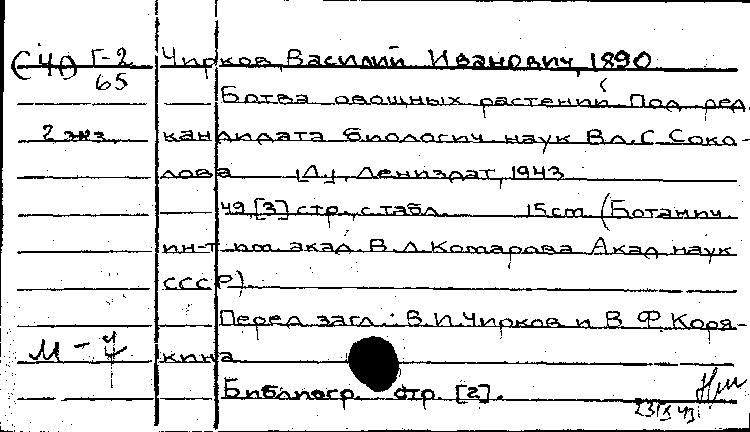 Г-2
65
Чирков, Василий Иванович, 1890
Ботва овощных растений Под ред.
2 экз. кандидата биологич наук Вл. С. Соко-
лова [Л.], Лениздат, 1943
49 [3] стр., с табл. 15 cm (Ботанич.
ин-т им. акад. В. Л. Комарова Акад наук
СССР).
Перед загл.: В. И. Чирков и В. Ф. Коря-
М-7 кина
Библиогр. стр. [2].